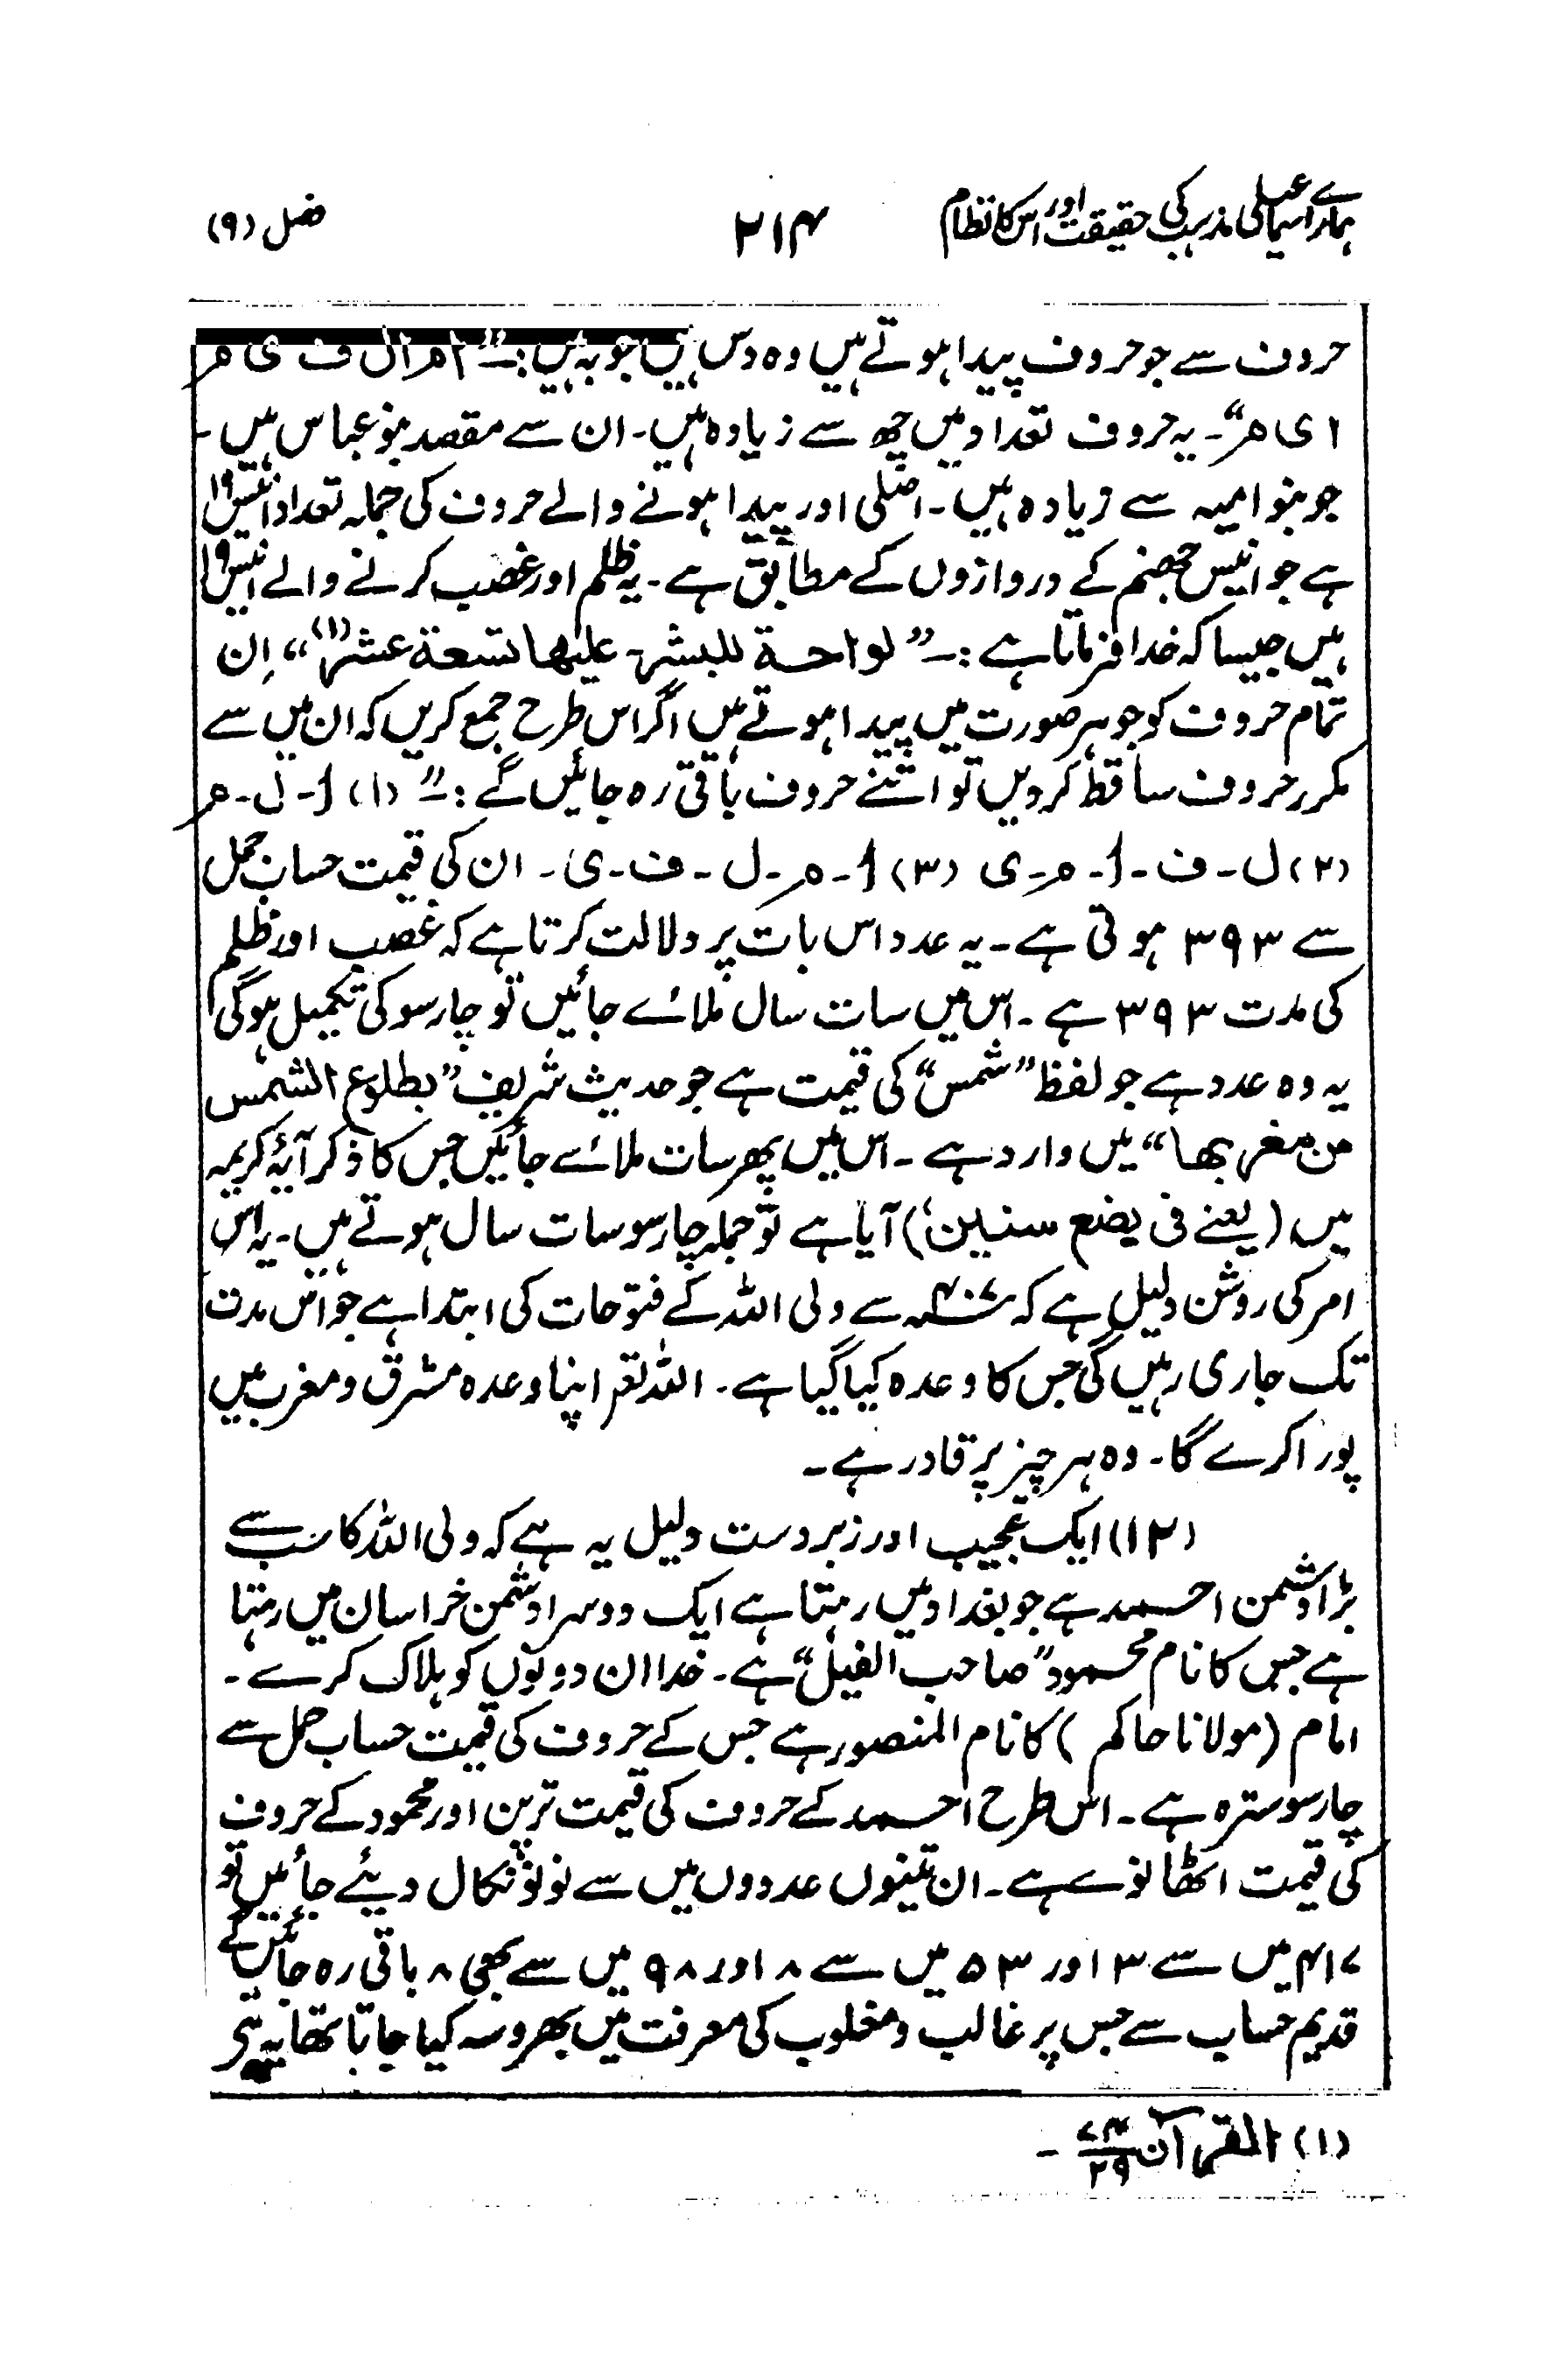 ہمارے اسماعیلی مذہب کی حقیقت اور اس کا نظام ۲۱۴ فصل (۹)
حروف سے جو حروف پیدا ہوتے ہیں وہ دس ہیں جو یہ ہیں :۔ " ا م ا ل ف ی م
ا ی م"۔ یہ حروف تعداد میں چھ سے زیادہ ہیں۔ ان سے مقصد بنو عباس ہیں۔
جو بنو امیہ سے زیادہ ہیں۔ اصلی اور پیدا ہونے والے حروف کی جملہ تعداد انیس ۱۹
ہے جو انیس جہنم کے دروازوں کے مطابق ہے۔ یہ ظلم اور غصب کرنے والے انیس ۱۹
ہیں جیسا کہ خدا فرماتا ہے :۔ " لواحۃ للبشر۔ علیھا تسعۃ عشر(۱)" اِن
تمام حروف کو جو ہر صورت میں پیدا ہوتے ہیں اگر اس طرح جمع کریں کہ ان میں سے
مکرر حروف ساقط کر دیں تو اتنے حروف باقی رہ جائیں گے :۔ " (۱) ا۔ ل۔ م
(۲) ل۔ ف۔ ا۔ م۔ ی (۳) ا۔ م۔ ل۔ ف۔ ی۔ ان کی قیمت حساب جمل
سے ۳۹۳ ہوتی ہے۔ یہ عدد اس بات پر دلالت کرتا ہے کہ غصب اور ظلم
کی مدت ۳۹۳ ہے۔ اس میں سات سال ملائے جائیں تو چار سو کی تکمیل ہوگی
یہ وہ عدد ہے جو لفظ "شمس" کی قیمت ہے جو حدیث شریف "بطلوع الشمس
من مغربھا" میں وارد ہے۔ اس میں پھر سات ملائے جائیں جس کا ذکر آیۂ کریمہ
میں (یعنے فی بضع سنین) آیا ہے تو جملہ چار سو سات سال ہوتے ہیں۔ یہ اس
امر کی روشن دلیل ہے کہ ۴۰۷ھ سے ولی اللہ کے فتوحات کی ابتدا ہے جو اس مدت
تک جاری رہیں گی جس کا وعدہ کیا گیا ہے۔ اللہ تعم اپنا وعدہ مشرق و مغرب میں
پورا کرے گا۔ وہ ہر چیز پر قادر ہے۔
(۱۲) ایک عجیب اور زبردست دلیل یہ ہے کہ ولی اللہ کا سب سے
بڑا دشمن احمد ہے جو بغداد میں رہتا ہے ایک دوسرا دشمن خراسان میں رہتا
ہے جس کا نام محمود "صاحب الفیل" ہے۔ خدا ان دونوں کو ہلاک کرے۔
امام (مولانا حاکم) کا نام المنصور ہے جس کے حروف کی قیمت حساب جمل سے
چار سو سترہ ہے۔ اس طرح احمد کے حروف کی قیمت ترپن اور محمود کے حروف
کی قیمت اٹھانوے ہے۔ ان تینوں عددوں میں سے نو نو نکال دیئے جائیں تو
۴۱۷ میں سے ۳ اور ۵۳ میں سے ۸ اور ۹۸ میں سے بھی ۸ باقی رہ جائیں گے
قدیم حساب سے جس پر غالب و مغلوب کی معرفت میں بھروسہ کیا جاتا تھا یہ
(۱) القرآن ۷۴/۲۹ ۔